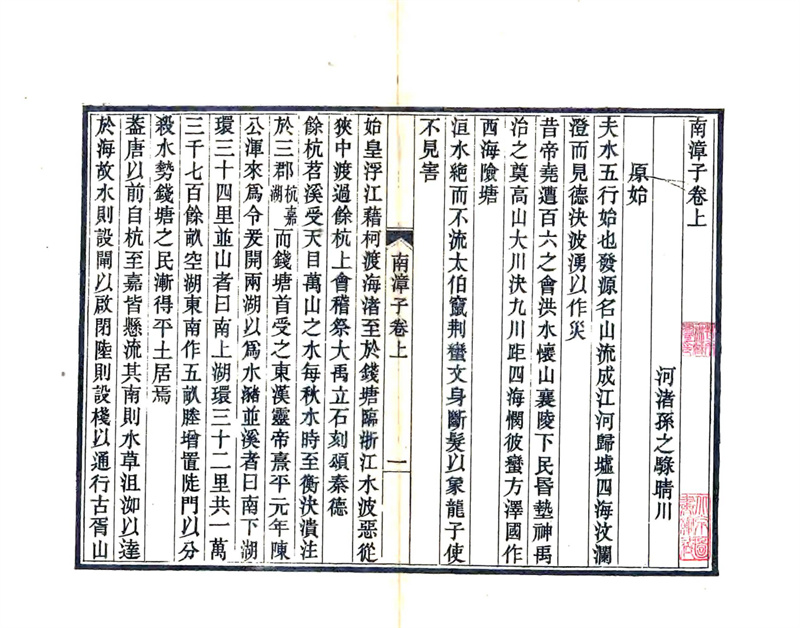 南漳子卷上
河渚孫之騄晴川
原始
夫水五行始也發源名山流成江河歸墟四海汶瀾
澄而見德決波湧以作災
昔帝堯遭百六之會洪水懷山襄陵下民昏墊神禹
治之奠高山大川決九川距四海憫彼蠻方澤國作
西海險塘
洹水絶而不流太伯竄荆蠻文身斷髮以象龍子使
不見害
南漳子卷上
一
始皇浮江藉柯渡海渚至於錢塘臨浙江水波惡從
狹中渡過餘杭上會稽祭大禹立石刻頌秦德
餘杭苕溪受天目萬山之水每秋水時至衡決潰注
於三郡杭嘉湖而錢塘首受之東漢靈帝熹平元年陳
公渾來爲令爰開兩湖以爲水瀦並溪者曰南下湖
環三十四里並山者曰南上湖環三十二里共一萬
三千七百餘畝空湖東南作五畝塍增置陡門以分
殺水勢錢塘之民漸得平土居焉
葢唐以前自杭至嘉皆懸流其南則水草沮洳以達
於海故水則設閘以啟閉陸則設棧以通行古胥山